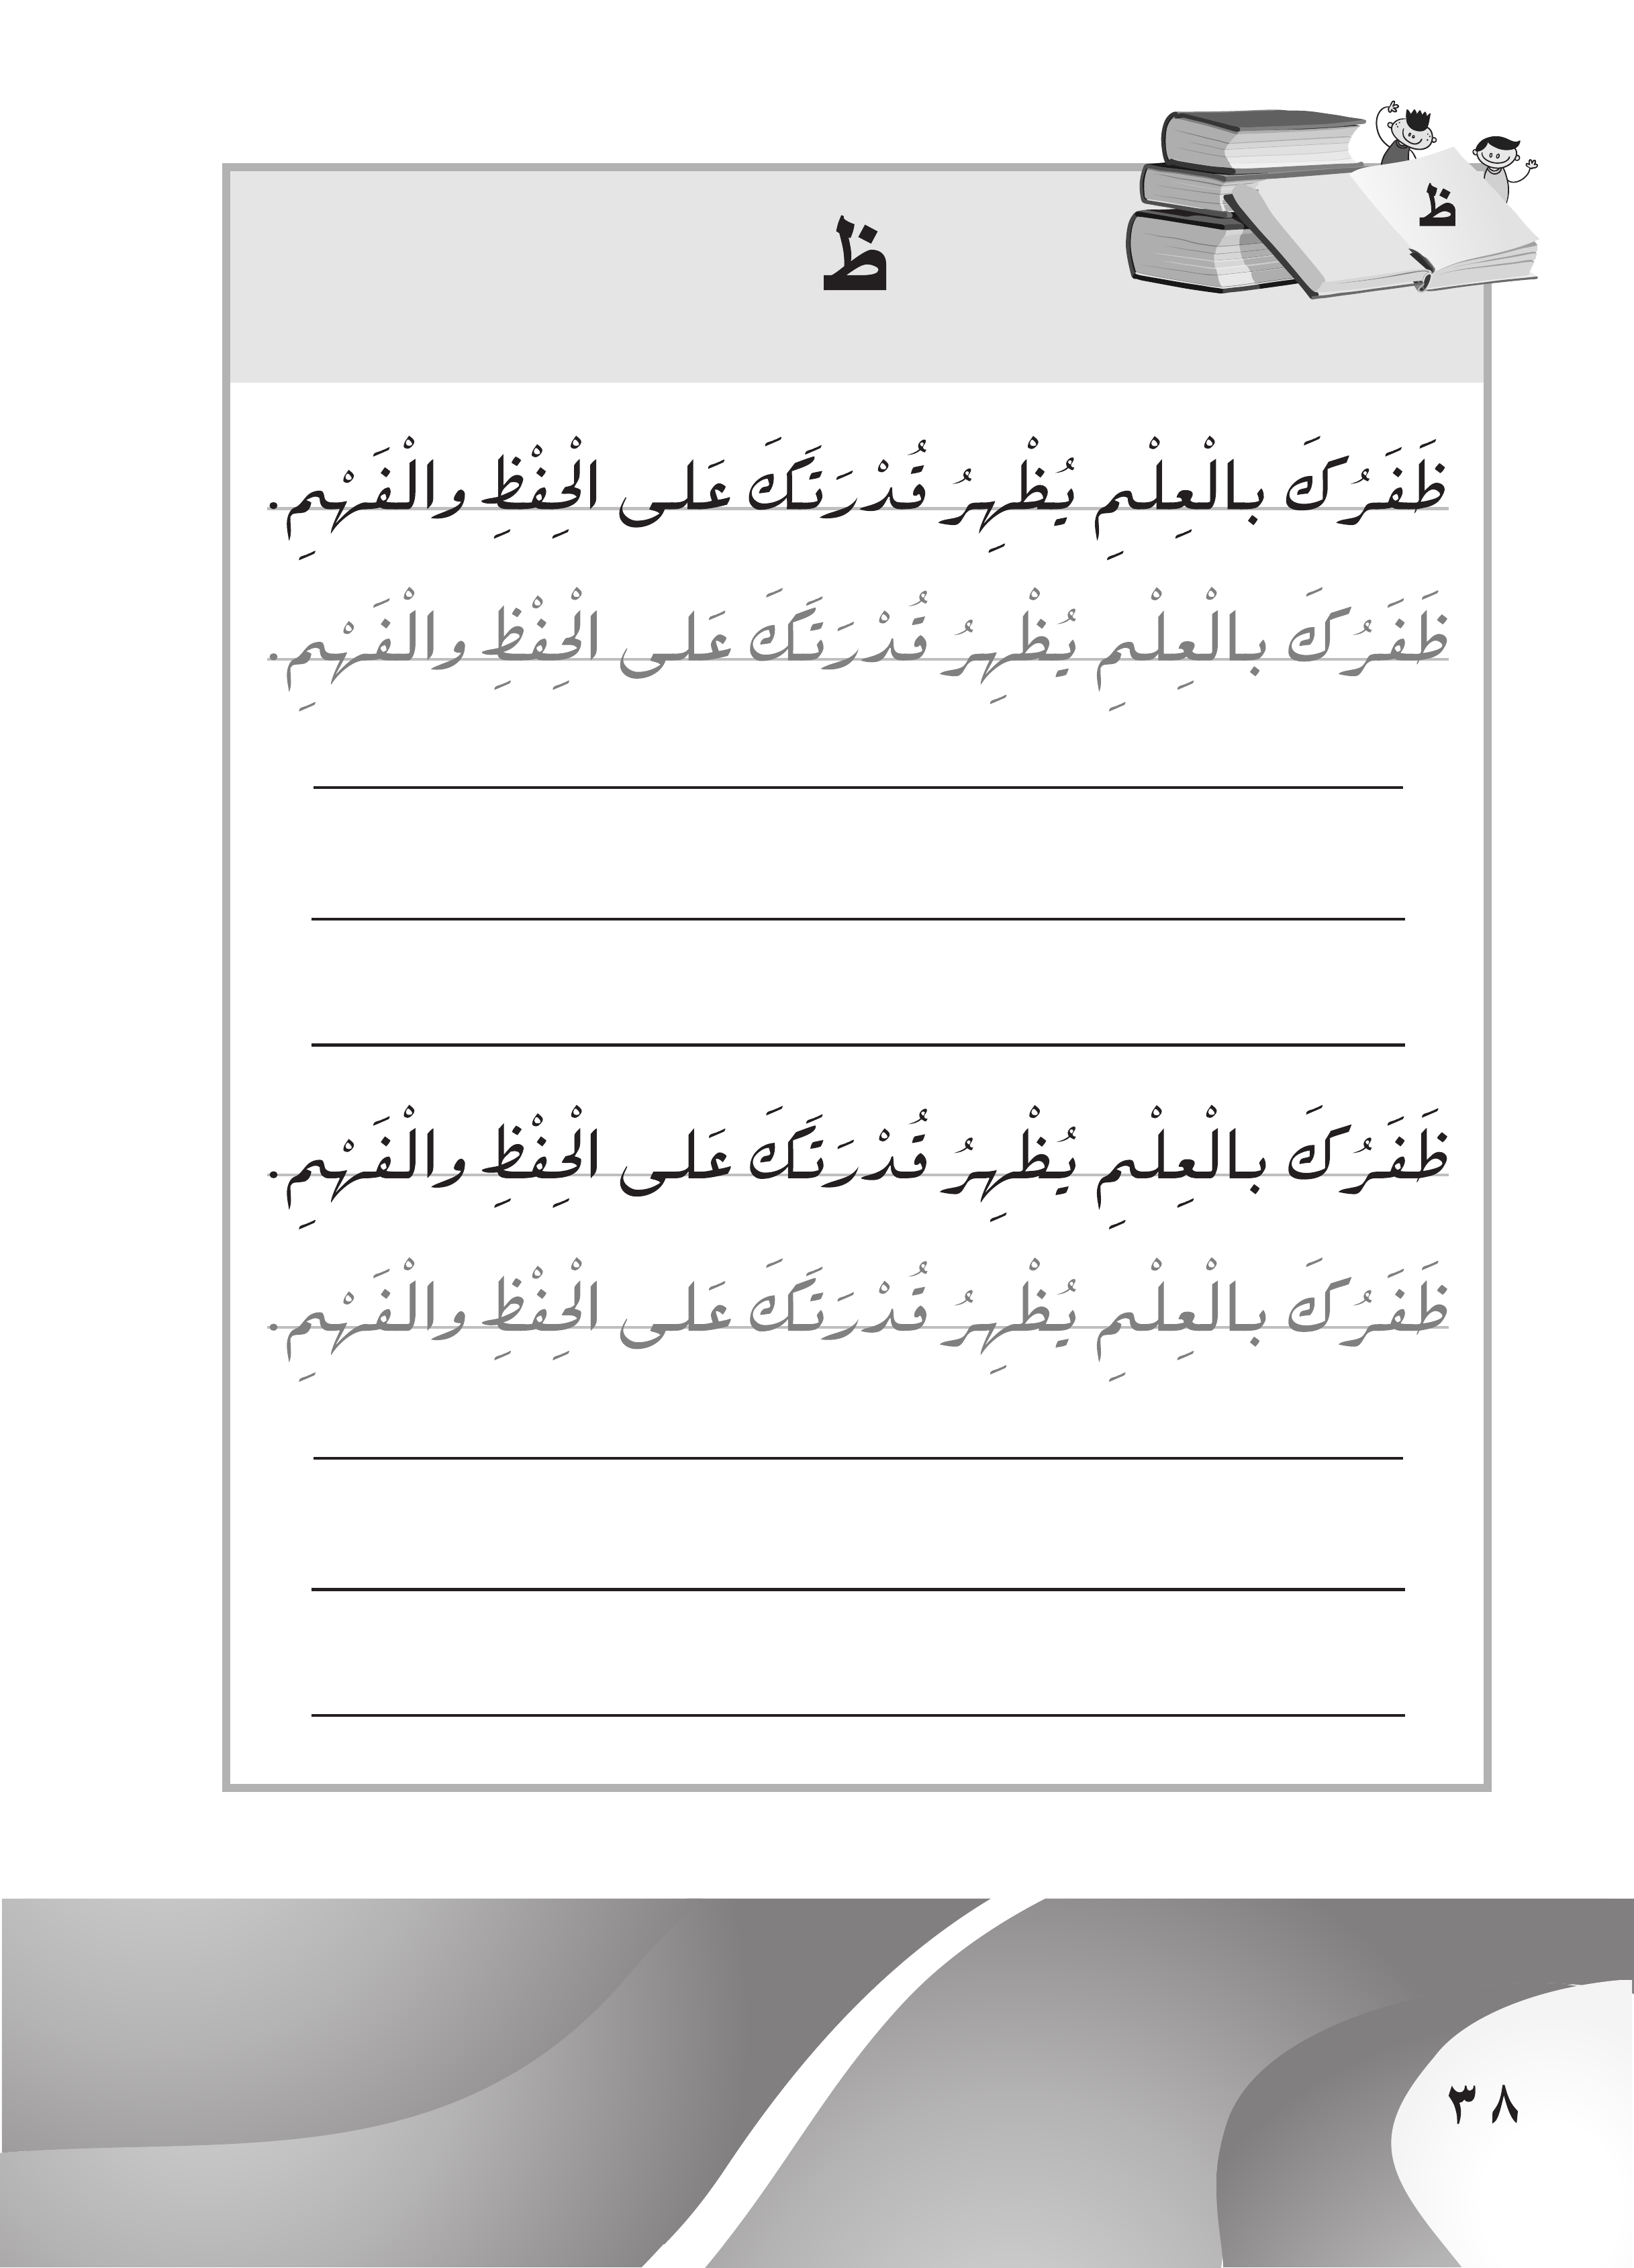 ظ
ظ
ظَفَرُكَ بالْعِلْمِ يُظْهِرُ قُدْرَتَكَ عَلى الْحِفْظِ والْفَهْمِ .
ظَفَرُكَ بالْعِلْمِ يُظْهِرُ قُدْرَتَكَ عَلى الْحِفْظِ والْفَهْمِ .
ظَفَرُكَ بالْعِلْمِ يُظْهِرُ قُدْرَتَكَ عَلى الْحِفْظِ والْفَهْمِ .
ظَفَرُكَ بالْعِلْمِ يُظْهِرُ قُدْرَتَكَ عَلى الْحِفْظِ والْفَهْمِ .
٣٨